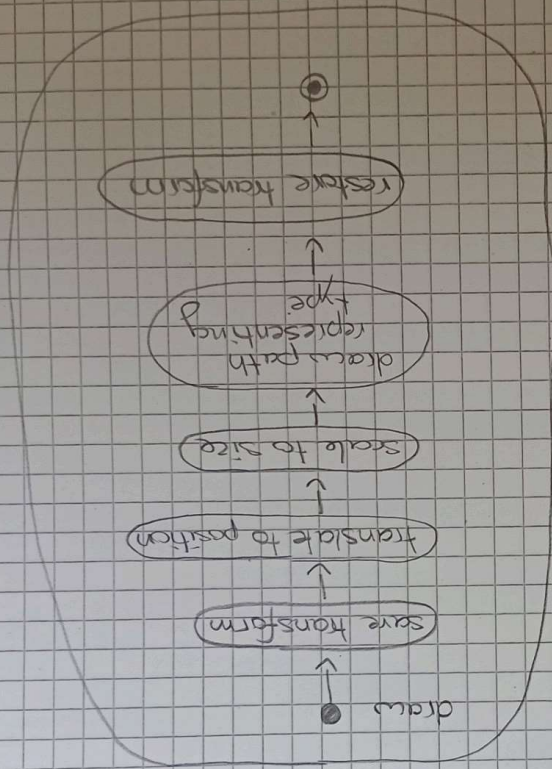 draw
save transform
translate to position
scale to size
draw path
representing
type
restore transform